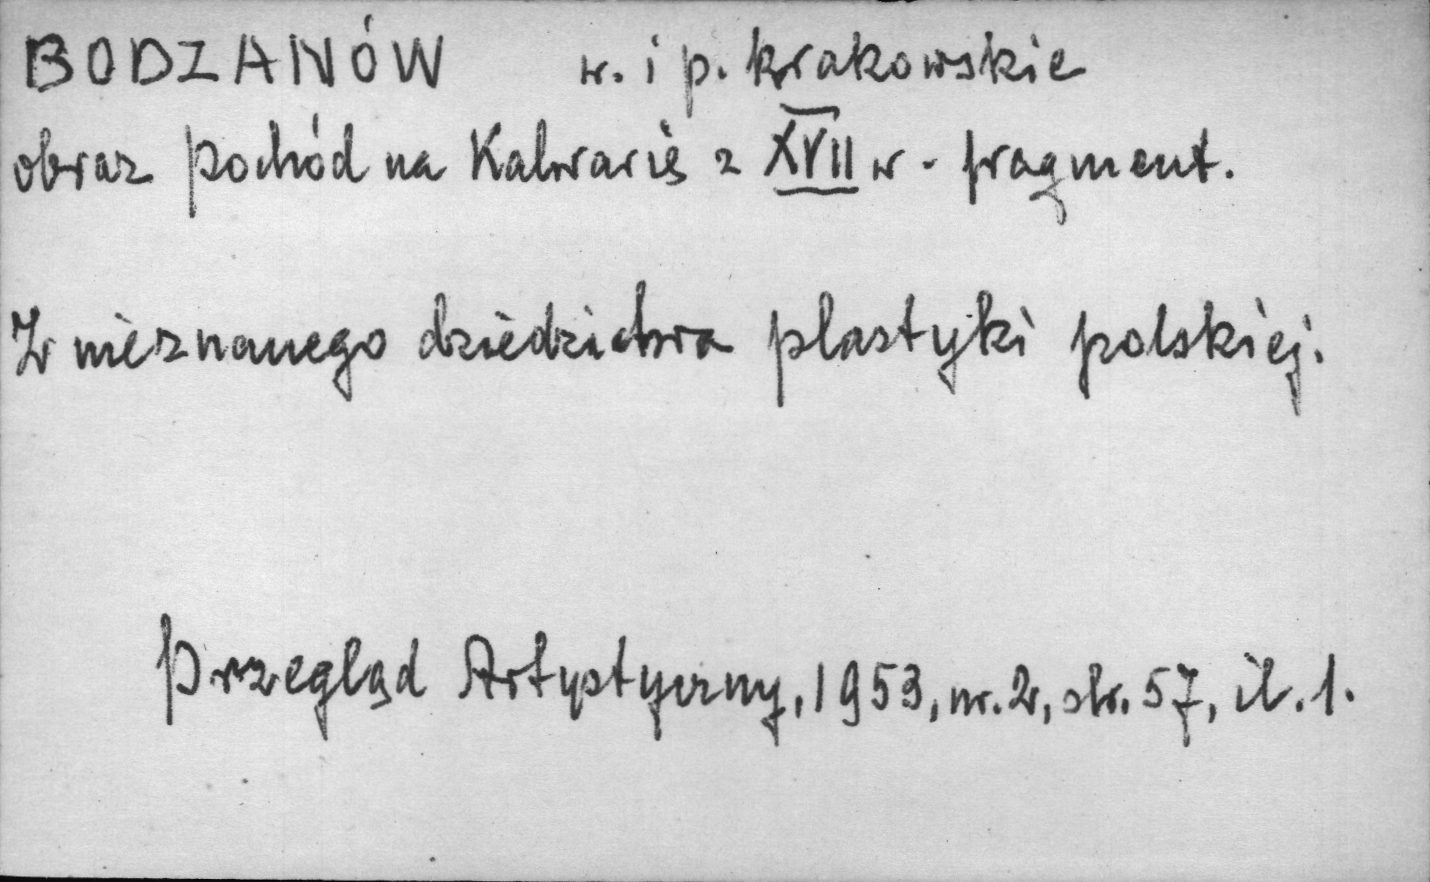 BODZANÓW w. i p. krakowskie
obraz Pochód na Kalwarię z XVII w - fragment.
Z nieznanego dziedzictwa plastyki polskiej.
Przegląd Artystyczny, 1953, nr. 2, str. 57, il. 1.